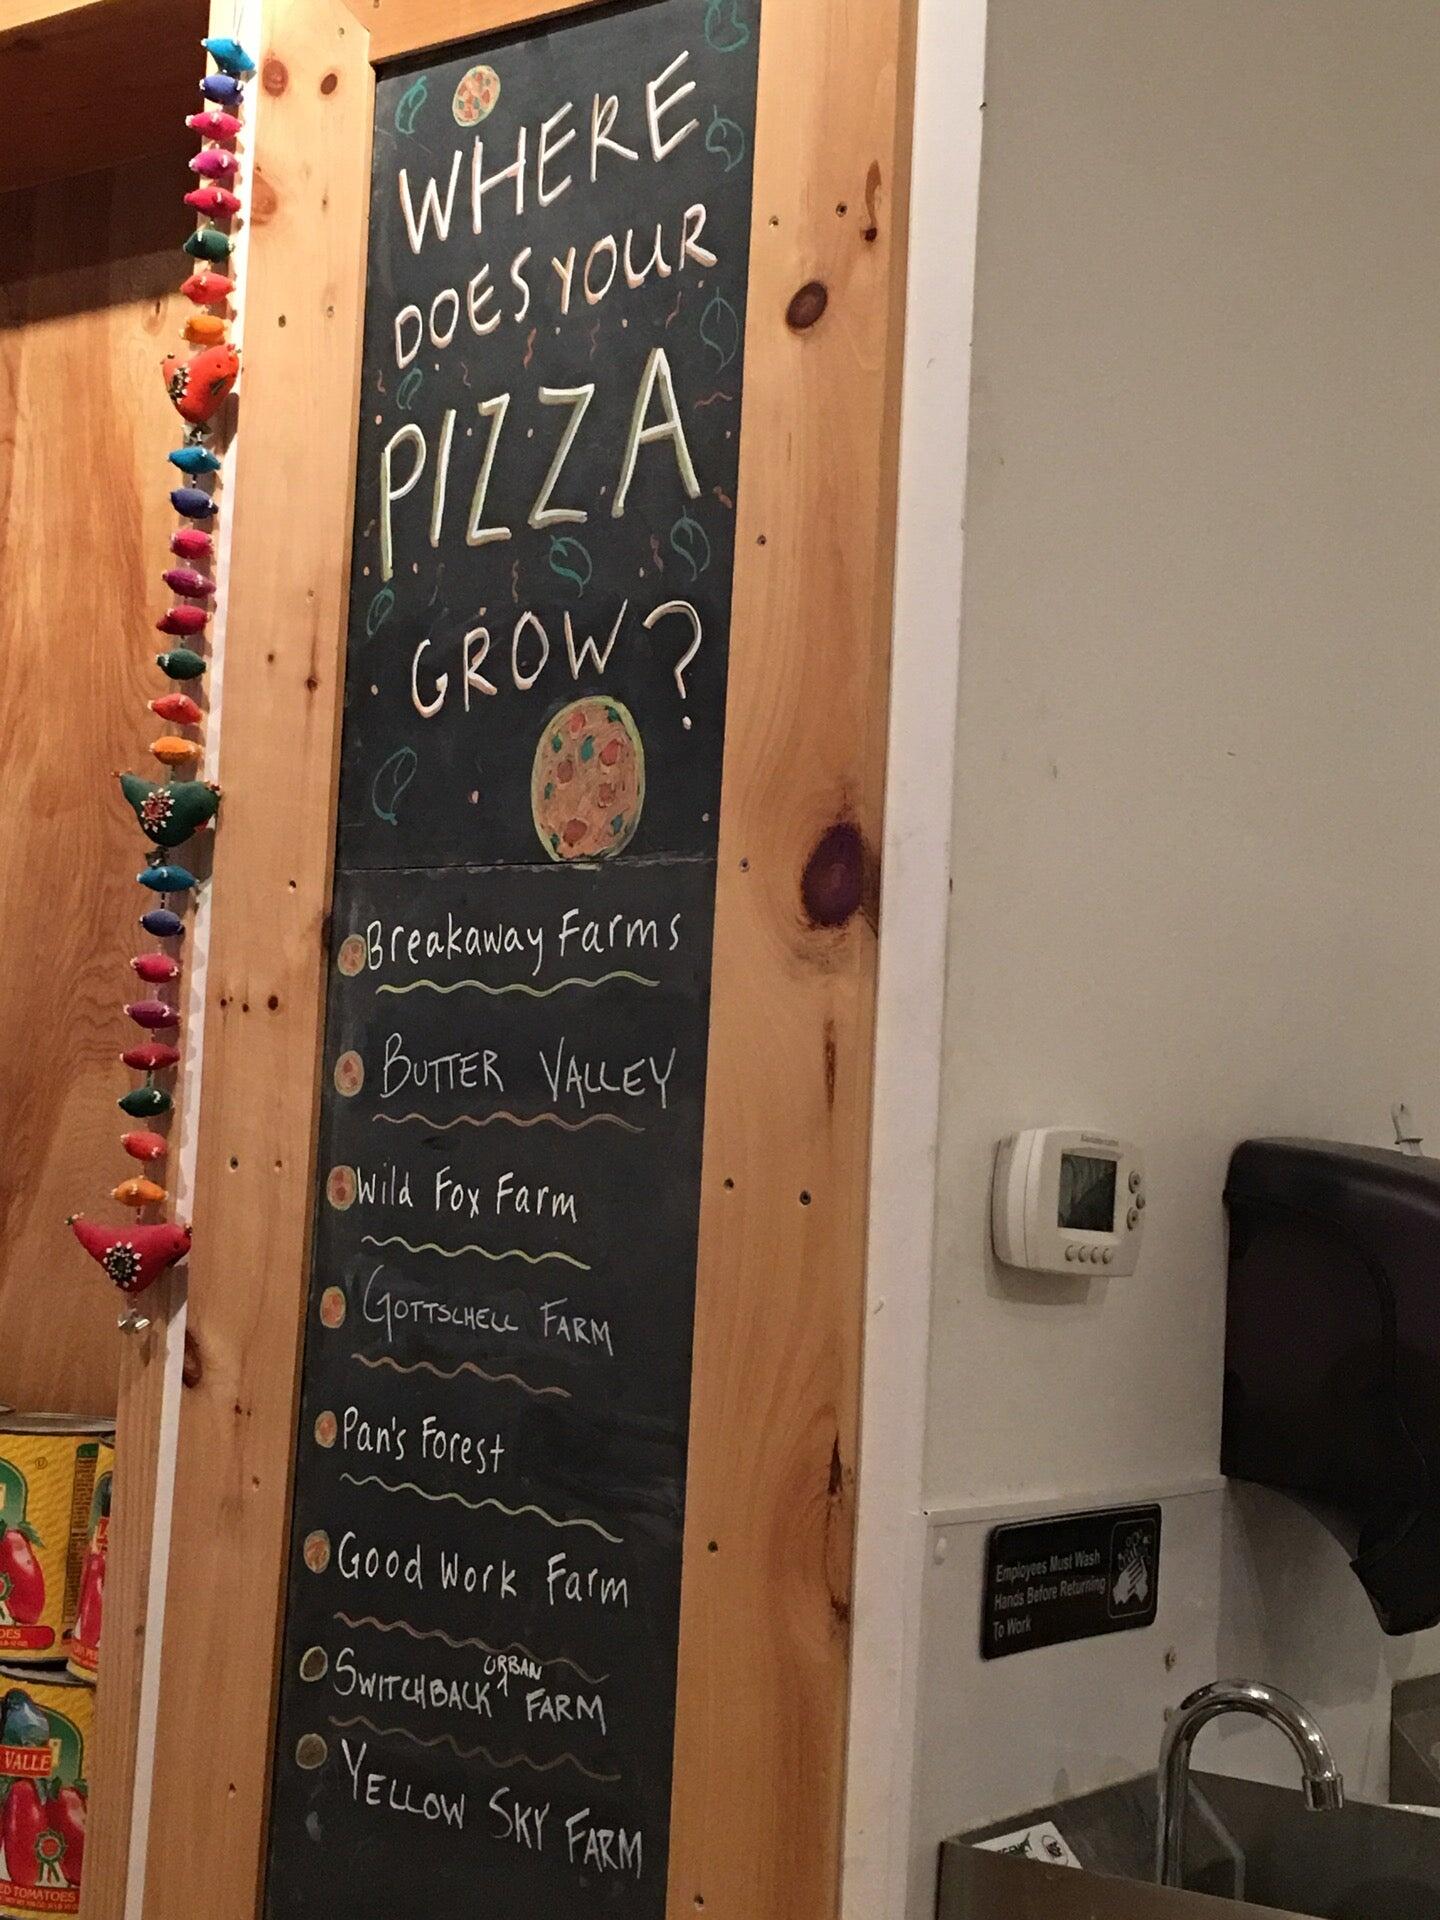 WHERE
DOES YOUR
PIZZA
GROW?
Breakaway Farms
BUTTER VALLEY
Wild Fox Farm
GOTTSCHELL FARM
Pan's Forest
Good Work Farm
SWITCHBACK URBAN FARM
YELLOW SKY FARM
Employees Must Wash
Hands Before Returning
To Work
VALLE
ED TOMATOES